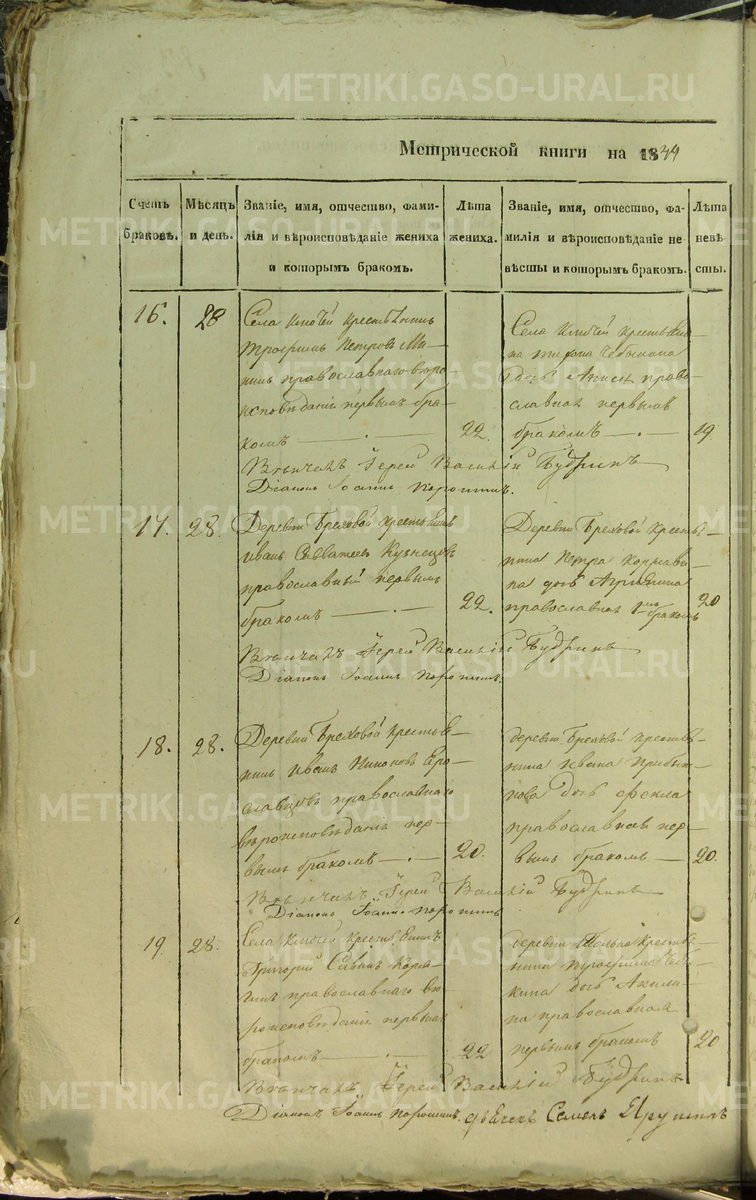 METRIKI.GASO-URAL.RU
Метрической книги на 1844
Счетъ браковъ.
Мѣсяцъ и день.
Званіе, имя, отчество, фамилія и вѣроисповѣданіе жениха и которымъ бракомъ.
Лѣта жениха.
Званіе, имя, отчество, фамилія и вѣроисповѣданіе невѣсты и которымъ бракомъ.
Лѣта невѣсты.
16. 28
Села Ключей крестьянинъ
Трофимъ Петровъ
православнаго вѣро-
исповѣданія первымъ бра-
комъ 22.
Села Ключей крестьяни-
на
дочь православная первымъ
бракомъ 19
Вѣнчалъ Іерей Василій Будринъ
Діаконъ Іоаннъ Порошинъ.
17. 28.
Деревни Бреховой крестьянинъ
Иванъ Савватѣевъ Кузнецовъ
православный первымъ
бракомъ 22.
Деревни Бреховой крестья-
нина Петра
дочь
православная 1мъ бракомъ 20
Вѣнчалъ Іерей Василій Будринъ
Діаконъ Іоаннъ Порошинъ.
18. 28.
Деревни Бреховой крестья-
нинъ Иванъ Никоновъ Еро-
славцовъ православнаго
вѣроисповѣданія пер-
вымъ бракомъ 20.
деревни Бреховой крестья-
нина Ивана
дочь Фекла
православная пер-
вымъ бракомъ 20.
Вѣнчалъ Іерей Василій Будринъ
Діаконъ Іоаннъ Порошинъ
19. 28.
Села Ключей крестьянинъ
Григорій Савинъ
православнаго вѣ-
роисповѣданія первымъ
бракомъ 22
деревни крестья-
нина Трофима
дочь Акили-
на православная
первымъ бракомъ 20
Вѣнчалъ Іерей Василій Будринъ
Діаконъ Іоаннъ Порошинъ. дьячекъ Семенъ